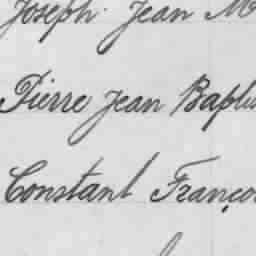 Joseph Jean M
Pierre Jean Bapti
Constant Franço